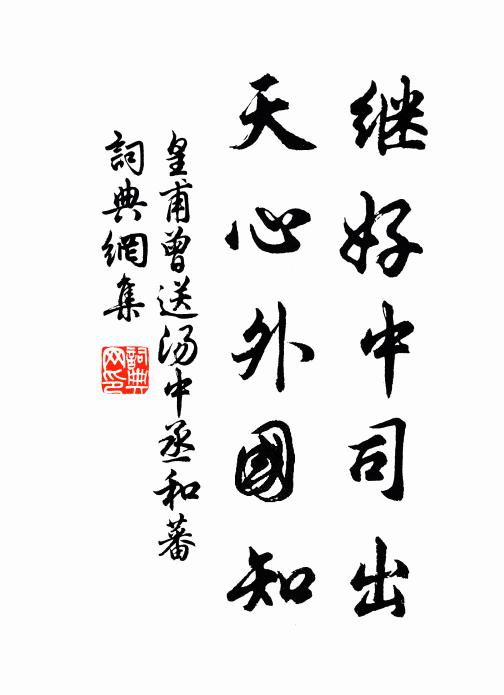 继好中司出
天心外國知
皇甫曾送汤中丞和蕃
詞典網集
詞典網印